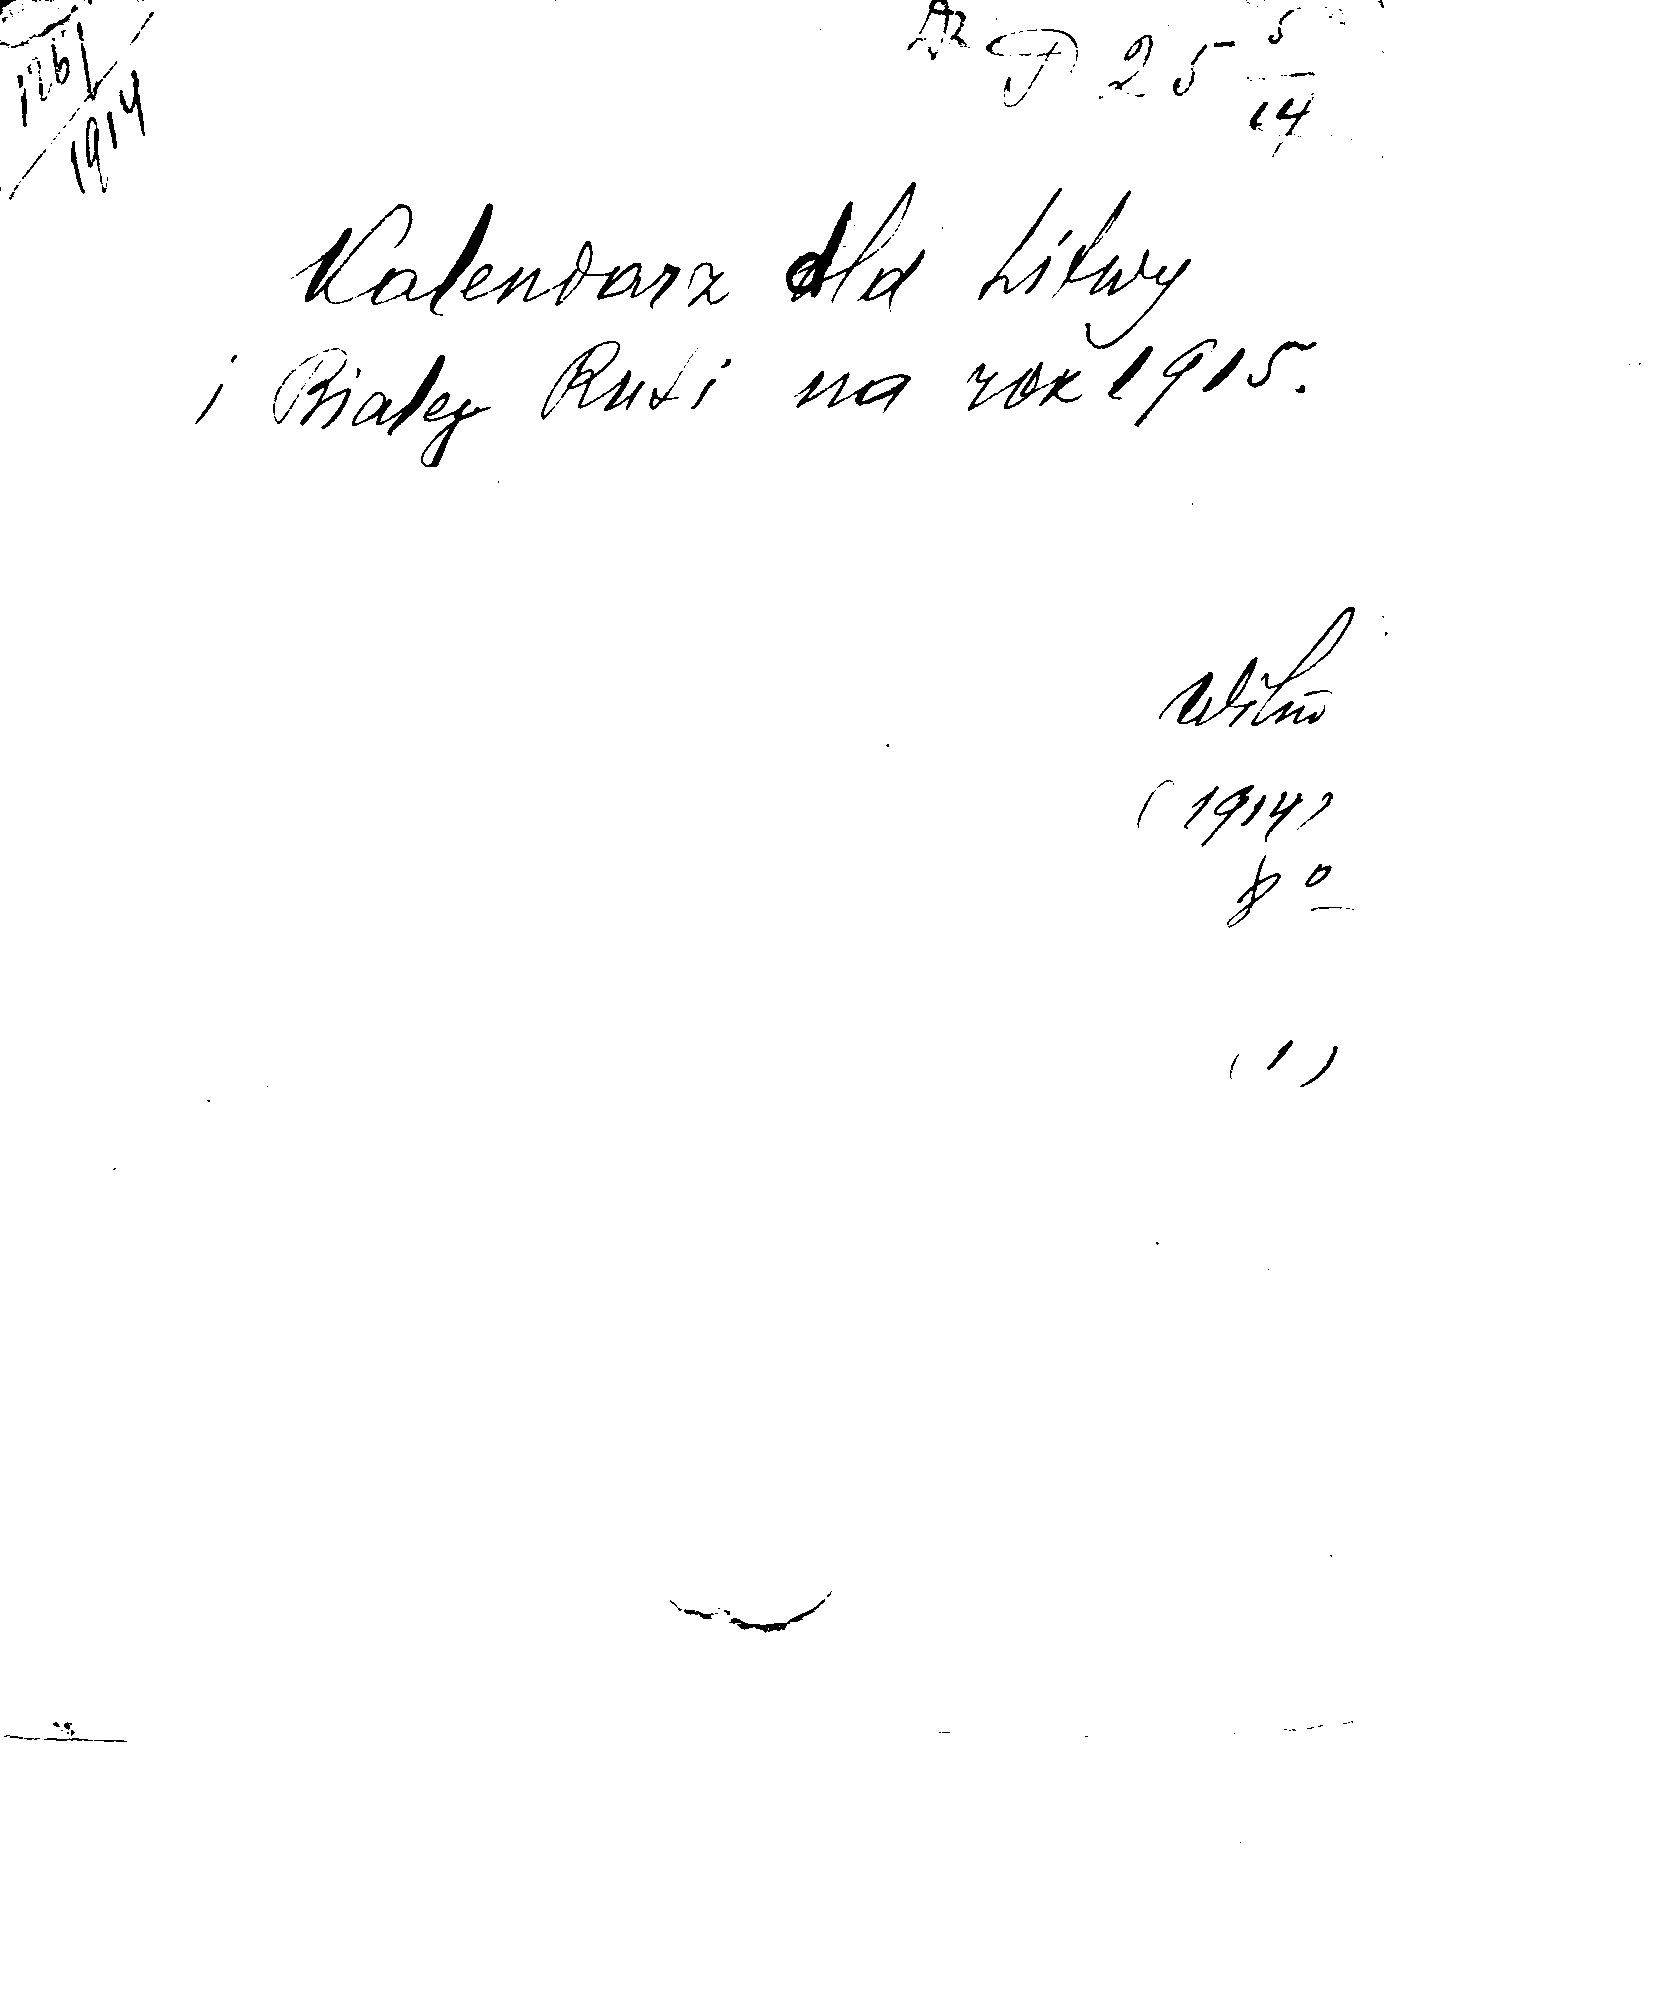 1261/1914
P 25 5/14
Kalendarz dla Litwy
i Białej Rusi na rok 1915.
Wilno
(1914)
8°
(1)